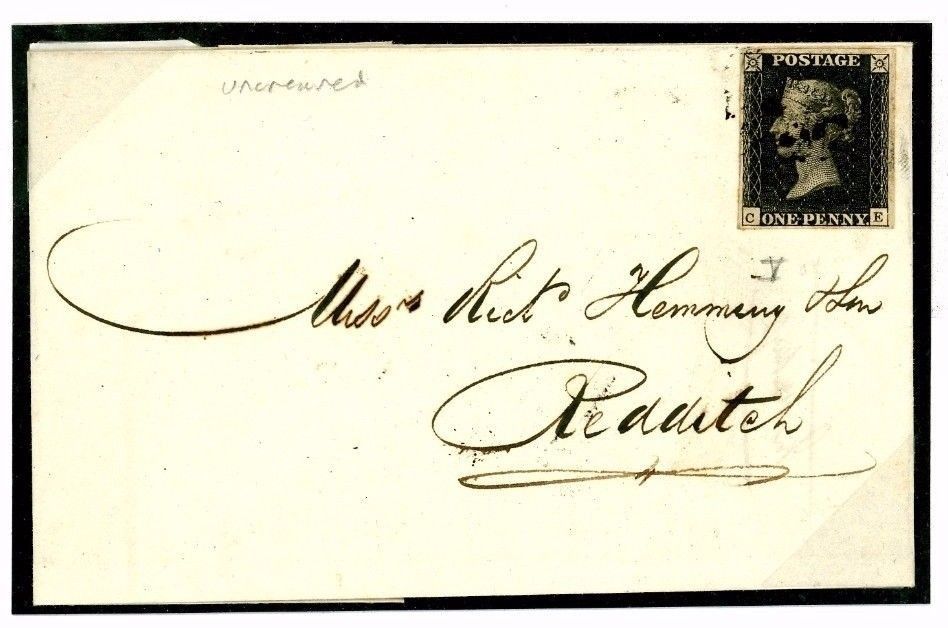 uncreured
POSTAGE
C ONE PENNY. E
Messrs Richd Hemming & Son
Redditch